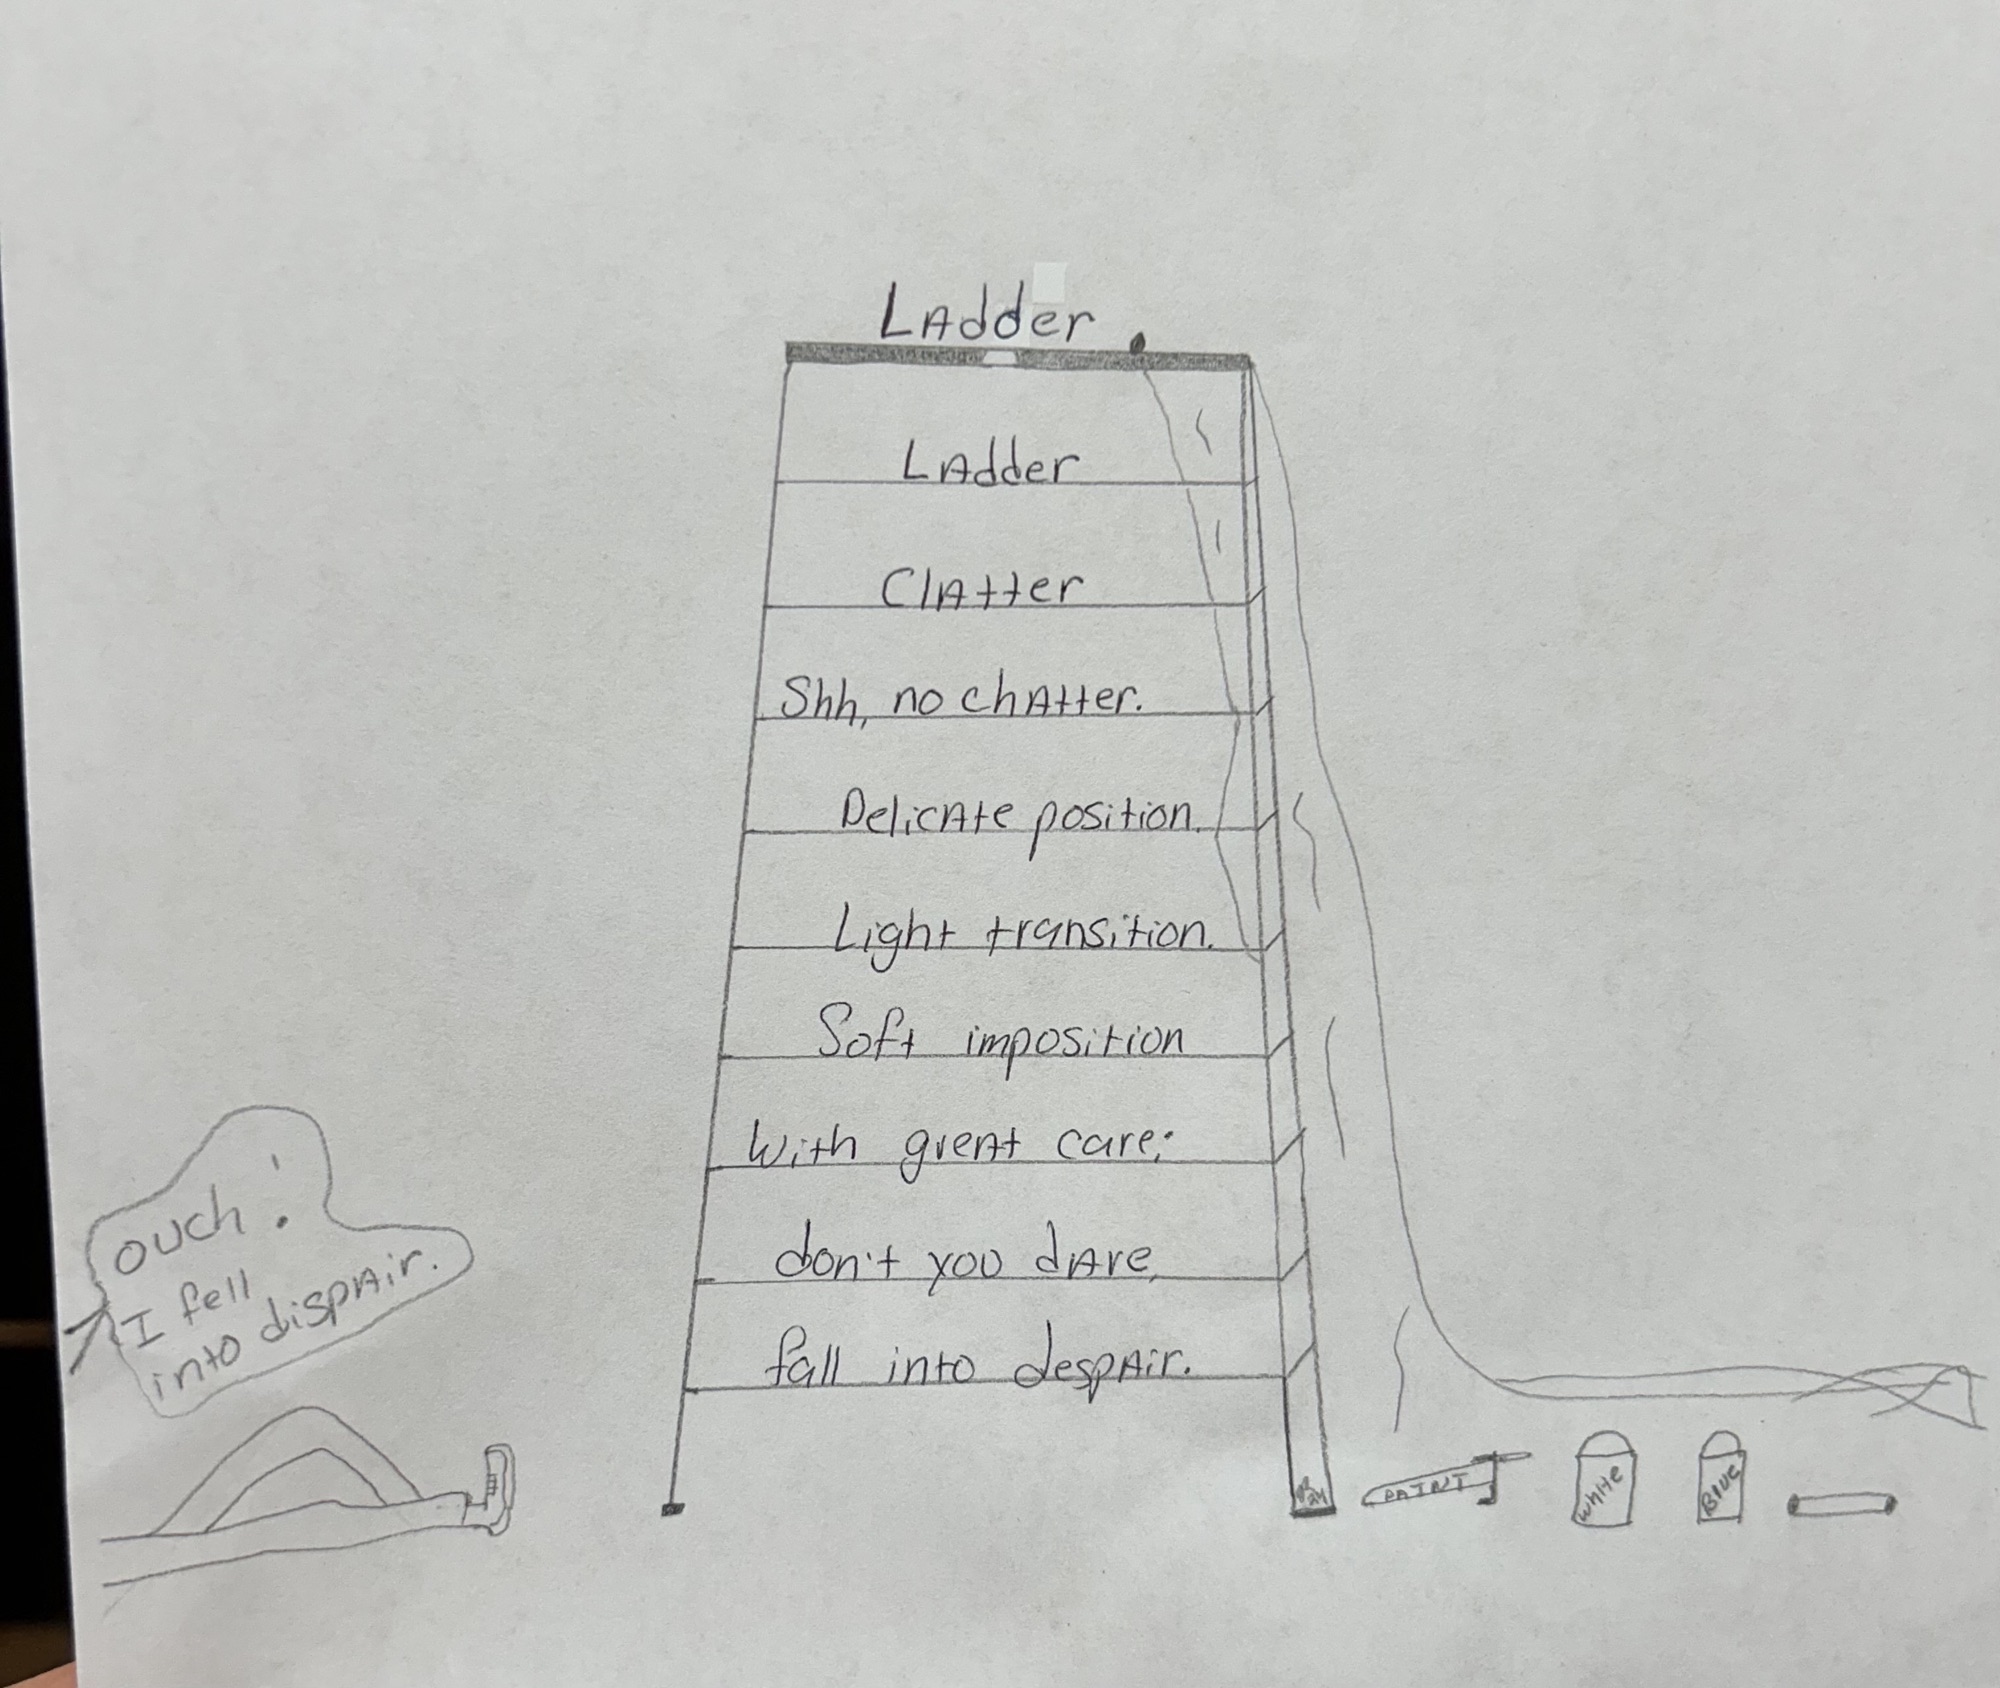 Ladder
Ladder
Clatter
Shh, no chatter.
Delicate position.
Light transition.
Soft imposition
With great care;
don't you dare,
fall into despair.
ouch!
I fell
into dispair.
PAINT
White
Blue